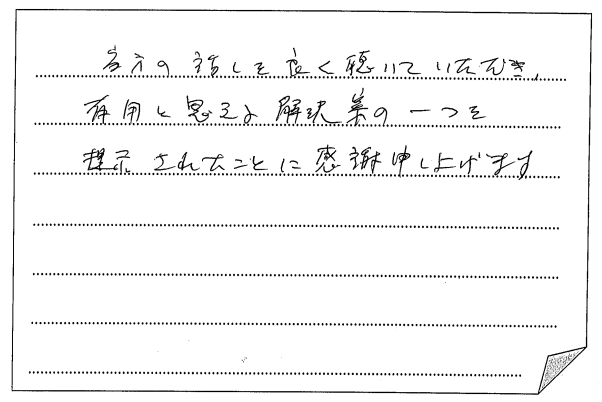 当方の話しを良く聴いていただき、
有用と思える解決案の一つを
提示されたことに感謝申し上げます